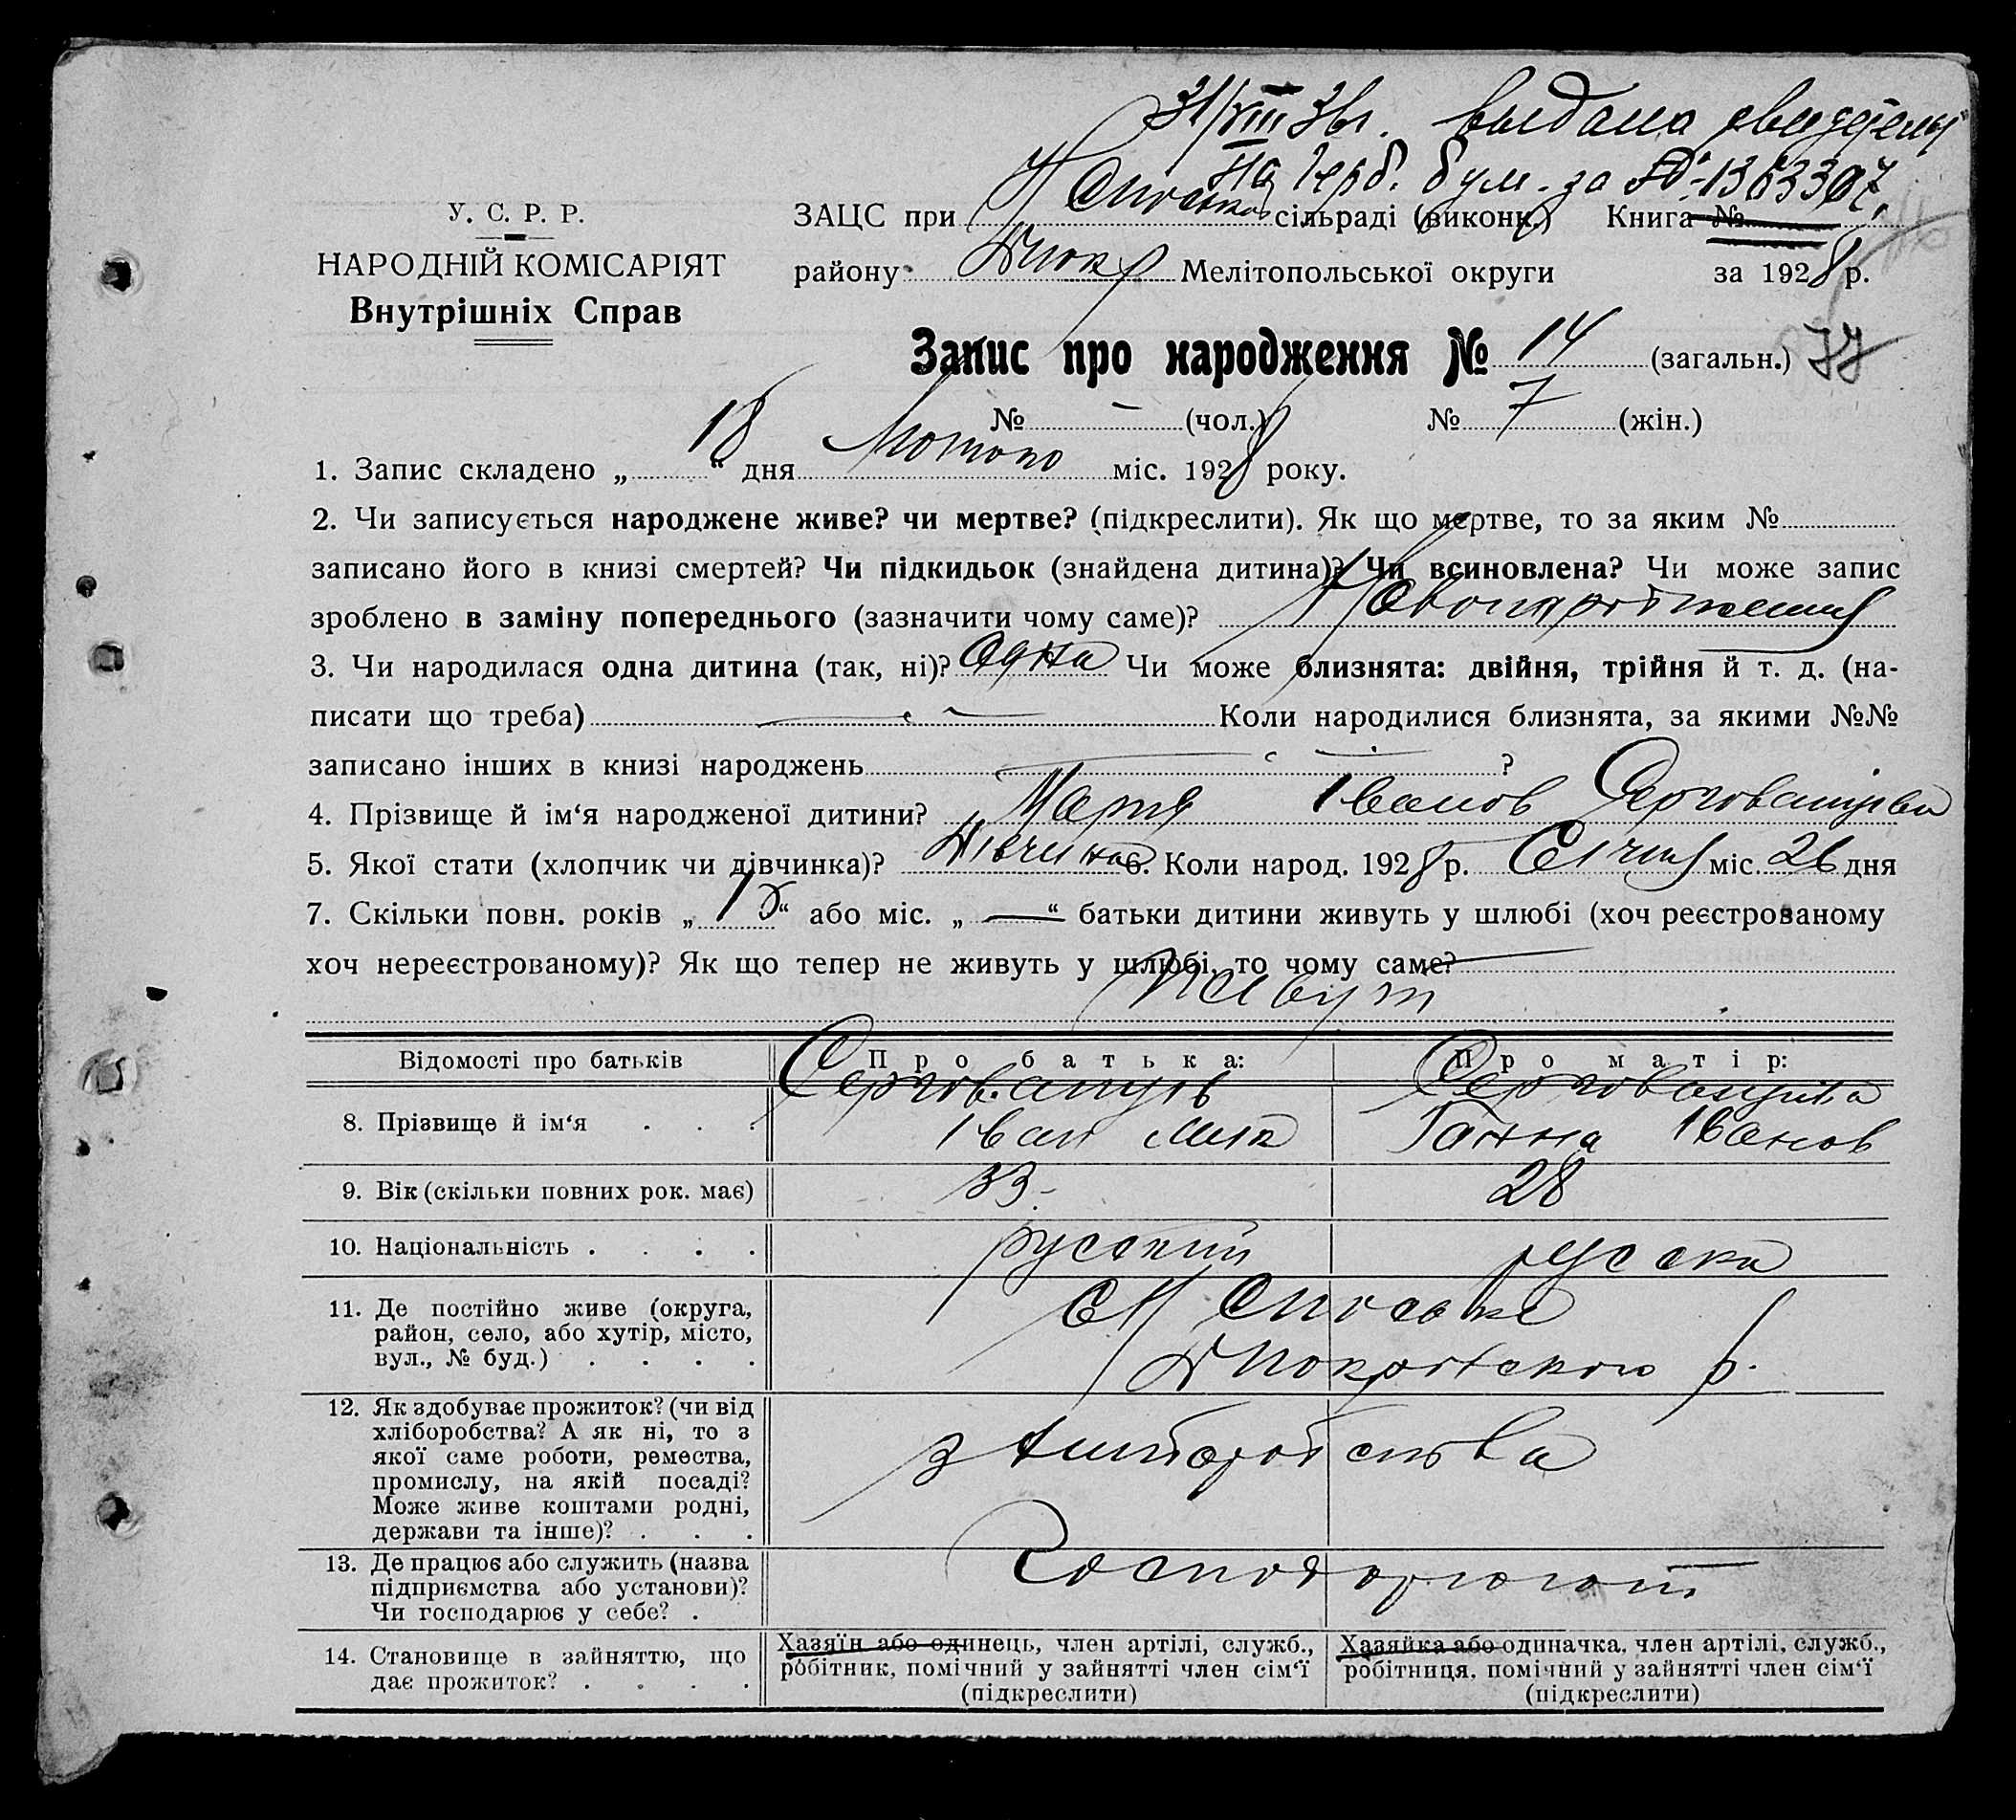 31/VIII 36г. выдана
на герб. бум. за № 1363397,
У. С. Р. Р.
НАРОДНІЙ КОМІСАРІЯТ
Внутрішніх Справ
ЗАЦС при сільраді (виконк.) Книга №
району Мелітопольської округи за 1928 р.
Запис про народження № 14 (загальн.) 77
№ – (чол.) № 7 (жін.)
1. Запис складено „ 18 “ дня Лютого міс. 1928 року.
2. Чи записується народжене живе? чи мертве? (підкреслити). Як що мертве, то за яким №
записано його в книзі смертей? Чи підкидьок (знайдена дитина)? Чи всиновлена? Чи може запис
зроблено в заміну попереднього (зазначити чому саме)?
3. Чи народилася одна дитина (так, ні)? Одна Чи може близнята: двійня, трійня й т. д. (на-
писати що треба) Коли народилися близнята, за якими №№
записано інших в книзі народжень ?
4. Прізвище й ім‘я народженої дитини? Мария Іванов
5. Якої стати (хлопчик чи дівчинка)? Дівчинка 6. Коли народ. 1928 р. Січня міс. 26 дня
7. Скільки повн. років „ “ або міс. „ — “ батьки дитини живуть у шлюбі (хоч реєстрованому
хоч нереєстрованому)? Як що тепер не живуть у шлюбі, то чому саме?
Живут
Відомості про батьків Про батька: Про матір:
8. Прізвище й ім‘я . . .
Іван Мик Ганна Іванов
9. Вік (скільки повних рок. має) 33 28
10. Національність . . . . русский русска
11. Де постійно живе (округа,
район, село, або хутір, місто,
вул., № буд.) . . . .
р.
12. Як здобуває прожиток? (чи від
хліборобства? А як ні, то з
якої саме роботи, ремества,
промислу, на якій посаді?
Може живе коштами родні,
держави та інше)? . . .
з хліборобства
13. Де працює або служить (назва
підприємства або установи)?
Чи господарює у себе? .
Господарюют
14. Становище в зайняттю, що
дає прожиток? . . . .
Хазяїн або одинець, член артілі, служб.,
робітник, помічний у зайнятті член сім‘ї
(підкреслити)
Хазяйка або одиначка, член артілі, служб.,
робітниця, помічний у зайнятті член сім‘ї
(підкреслити)